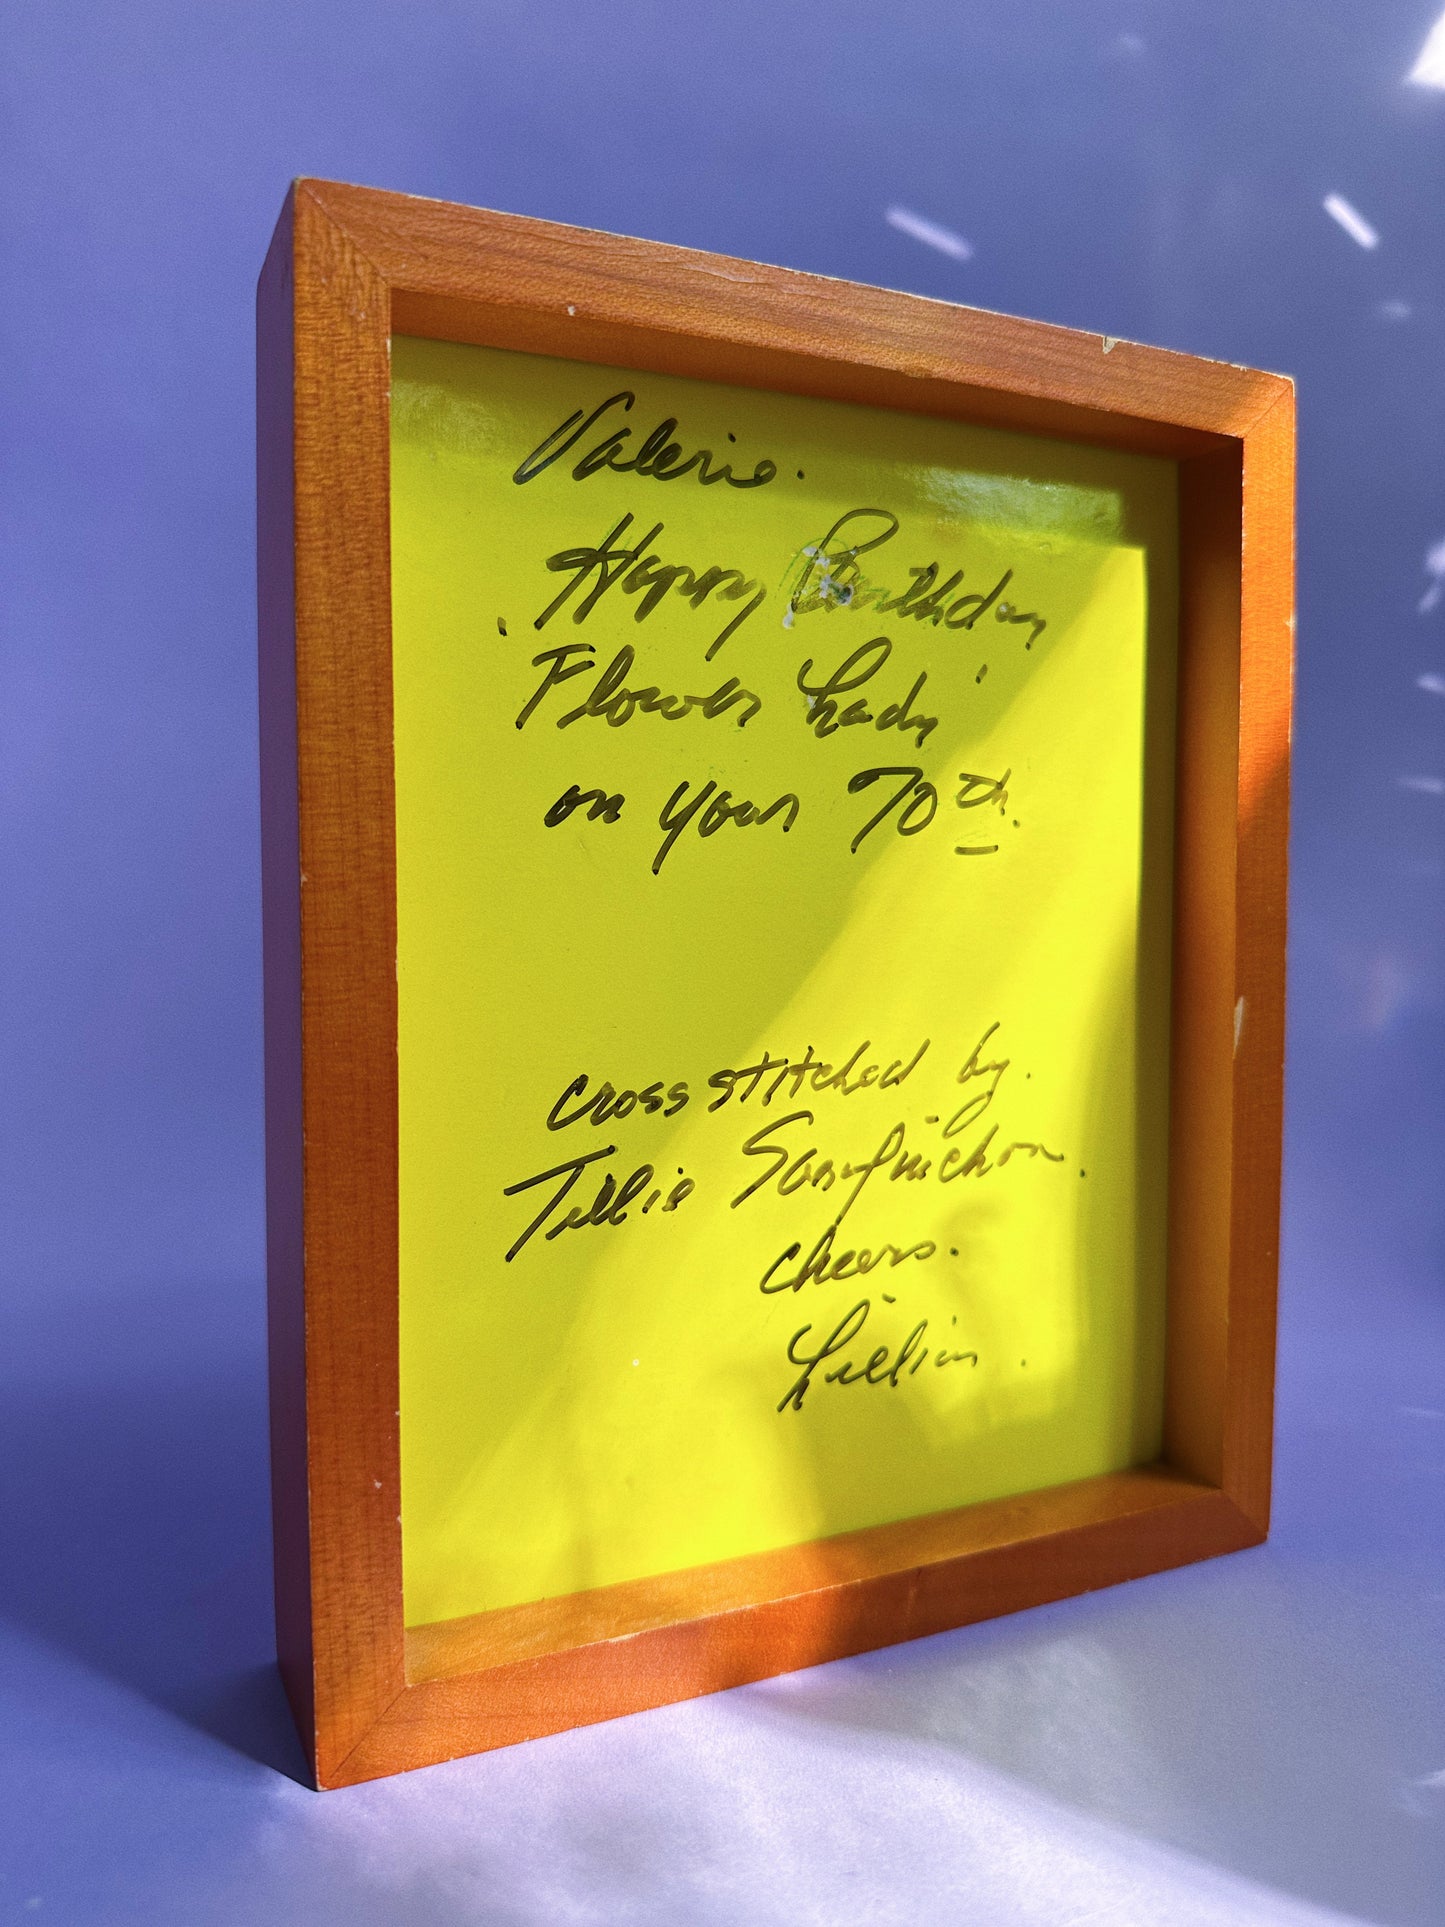 Valerie.
Happy Birthday
'Flower Lady'
on your 70th.
cross stitched by.
Tillie
cheers.
Lillian.